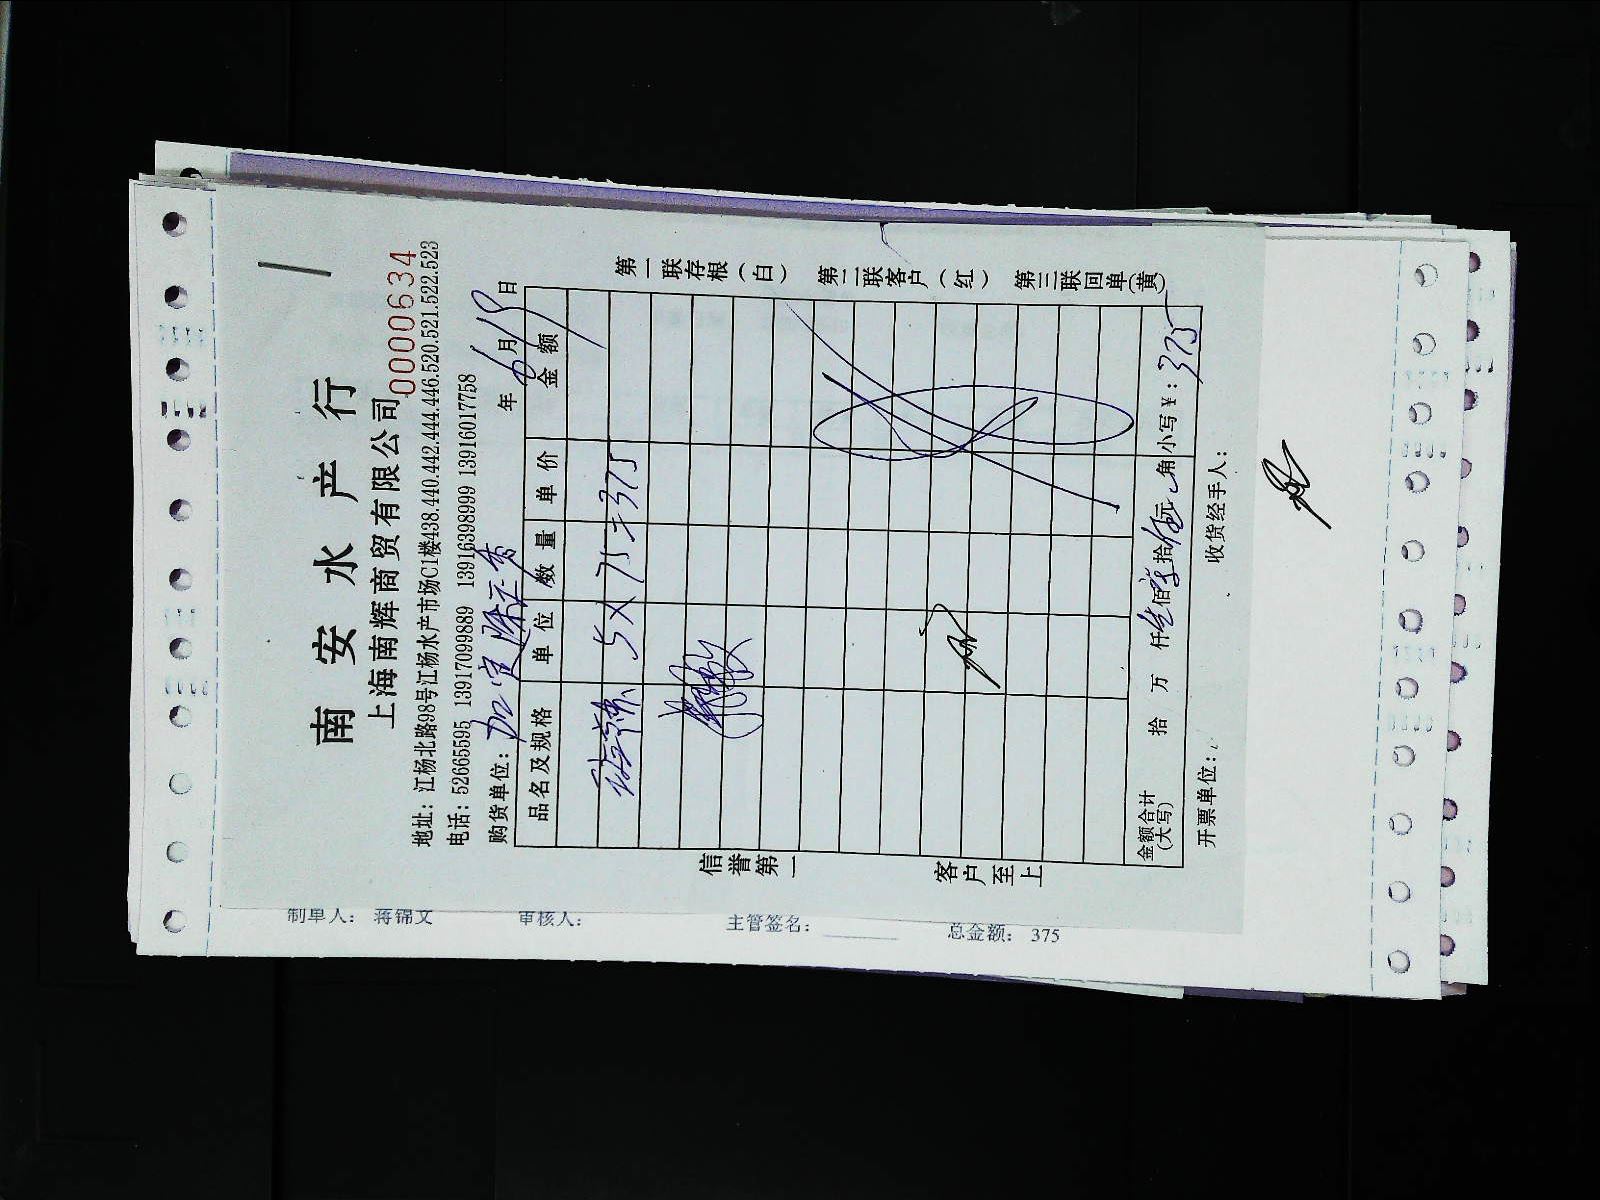 南安水产行
上海南辉商贸有限公司
0000634
地址：江杨北路98号江杨水产市场C1楼438.440.442.444.446.520.521.522.523
电话：52665595 13917099889 13916398999 13916017758
购货单位： 年 6 月 19 日
品名及规格 单位 数量 单价 金额
5×75=375
金额合计(大写) 拾 万 仟 佰 拾 伍元 角 小写￥：375
开票单位： 收货经手人：
信誉第一 客户至上
第一联存根（白）
第二联客户（红）
第三联回单（黄）
制单人： 蒋锦文 审核人： 主管签名： 总金额： 375